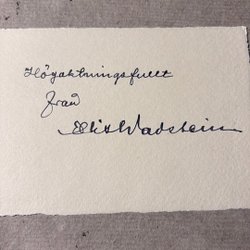 Högaktningsfullt
från
Elis Wadstein